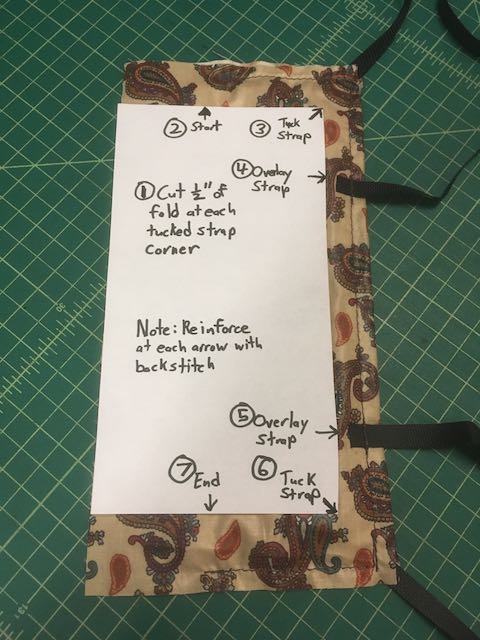 ② Start
③ Tuck
Strap
④ Overlay
Strap
① Cut ½" of
fold at each
tucked strap
corner
Note: Reinforce
at each arrow with
backstitch
⑤ Overlay
Strap
⑦ End
⑥ Tuck
Strap